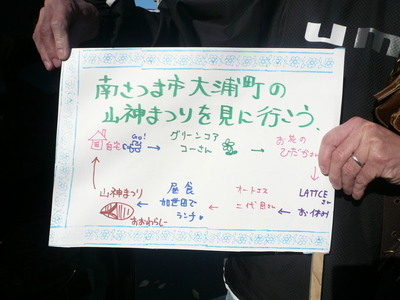 南さつま市大浦町の
山神まつりを見に行こう、
自宅
Go!
グリーンコア
コーさん
お花の
ひだかさん
LATTICE
さん
お休み
オートエス
二代目さん
昼食
加世田で
ランチ
山神まつり
おおわらじ
um